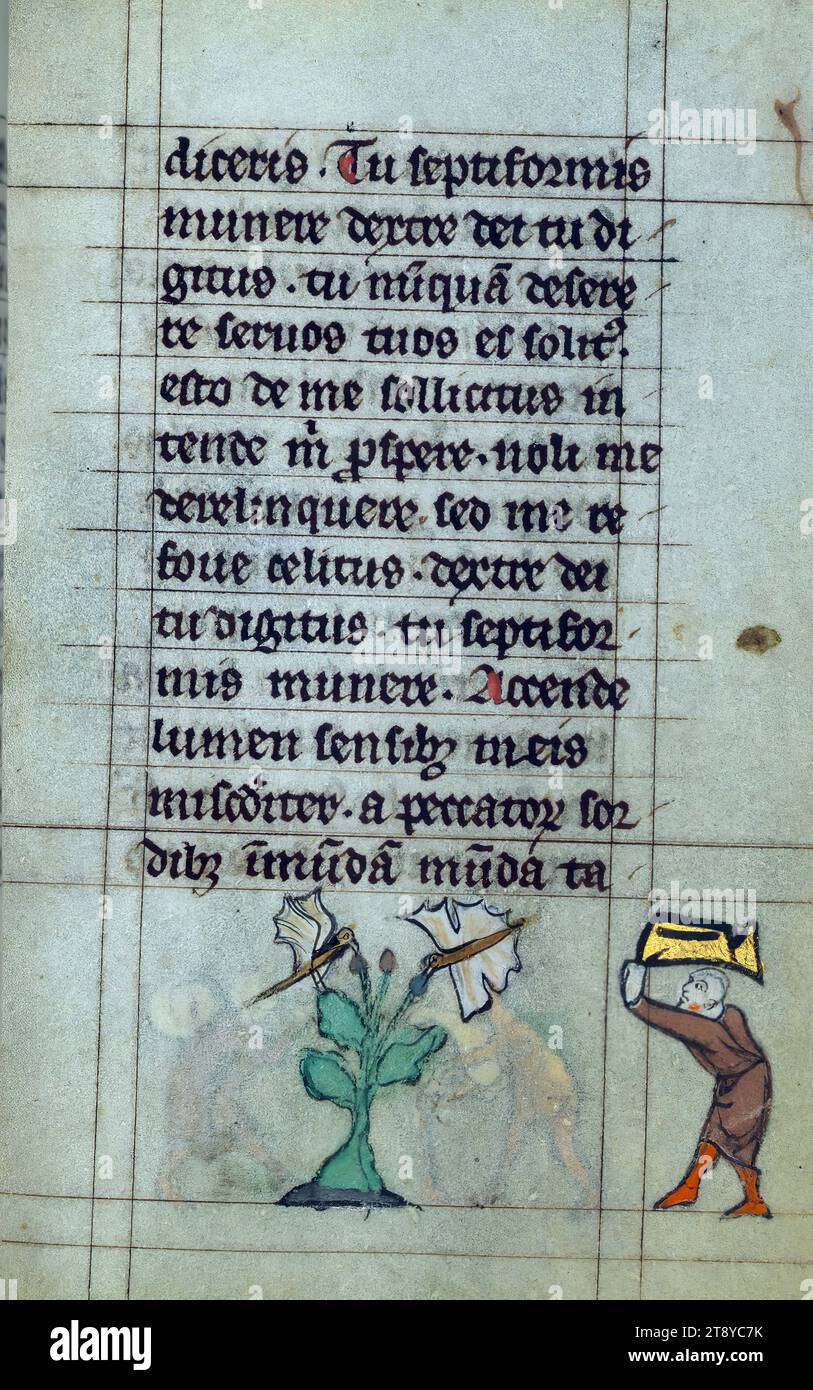 diceris . Tu septiformis
munere dextre dei tu di
gitus . tu nūquā desere
re seruos tuos es solitꝰ.
esto de me sollicitus in
tende m̄ ꝓspere . noli me
derelinquere . sed me re
foue celitus . dextre dei
tu digitus . tu septifor
mis munere . Accende
lumen sensibꝫ meis
a peccatoꝝ sor
dibꝫ īmūdā mūda ta
alamy
Image ID: 2T8YC7K
www.alamy.com